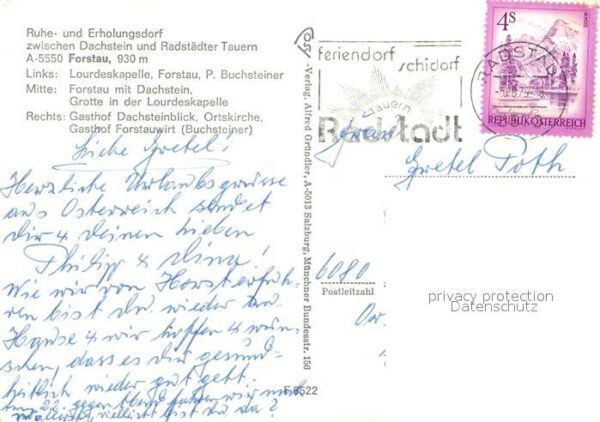 Ruhe- und Erholungsdorf
zwischen Dachstein und Radstädter Tauern
A-5550 Forstau, 930 m
Links: Lourdeskapelle, Forstau, P. Buchsteiner
Mitte: Forstau mit Dachstein,
Grotte in der Lourdeskapelle
Rechts: Gasthof Dachsteinblick, Ortskirche,
Gasthof Forstauwirt (Buchsteiner)
Liebe Gretel!
Herzliche Urlaubsgrüsse
aus Österreich sendet
Dir & Deinen Lieben
Philipp & Dina!
Wie wir von Horst erfuh-
ren bist Du wieder zu
Hause & wir hoffen & wün-
schen, dass es dir gesund-
heitlich wieder gut geht.
22. gegen Abend fahren wir nach
vielleicht bist du da?
-Verlag, Alfred Gründler, A-5013 Salzburg, Münchner Bundesstr. 156
feriendorf
schidorf
Tauern
Radstadt
RADSTADT
4S
REPUBLIK ÖSTERREICH
Frau
Gretel Poth
6080
Postleitzahl
privacy protection
Datenschutz
F 8522